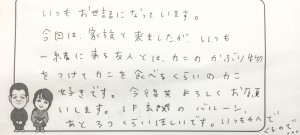 いつもお世話になっています。
今回は、家族と来ましたが、いつも
一緒に来る友人とは、カニのかぶり物
をつけてカニを食べるくらいのカニ
好きです。今後共よろしくお願
いします。1F玄関のバルーン、
あと3つくらいほしいです。いつも4人で
くるので…